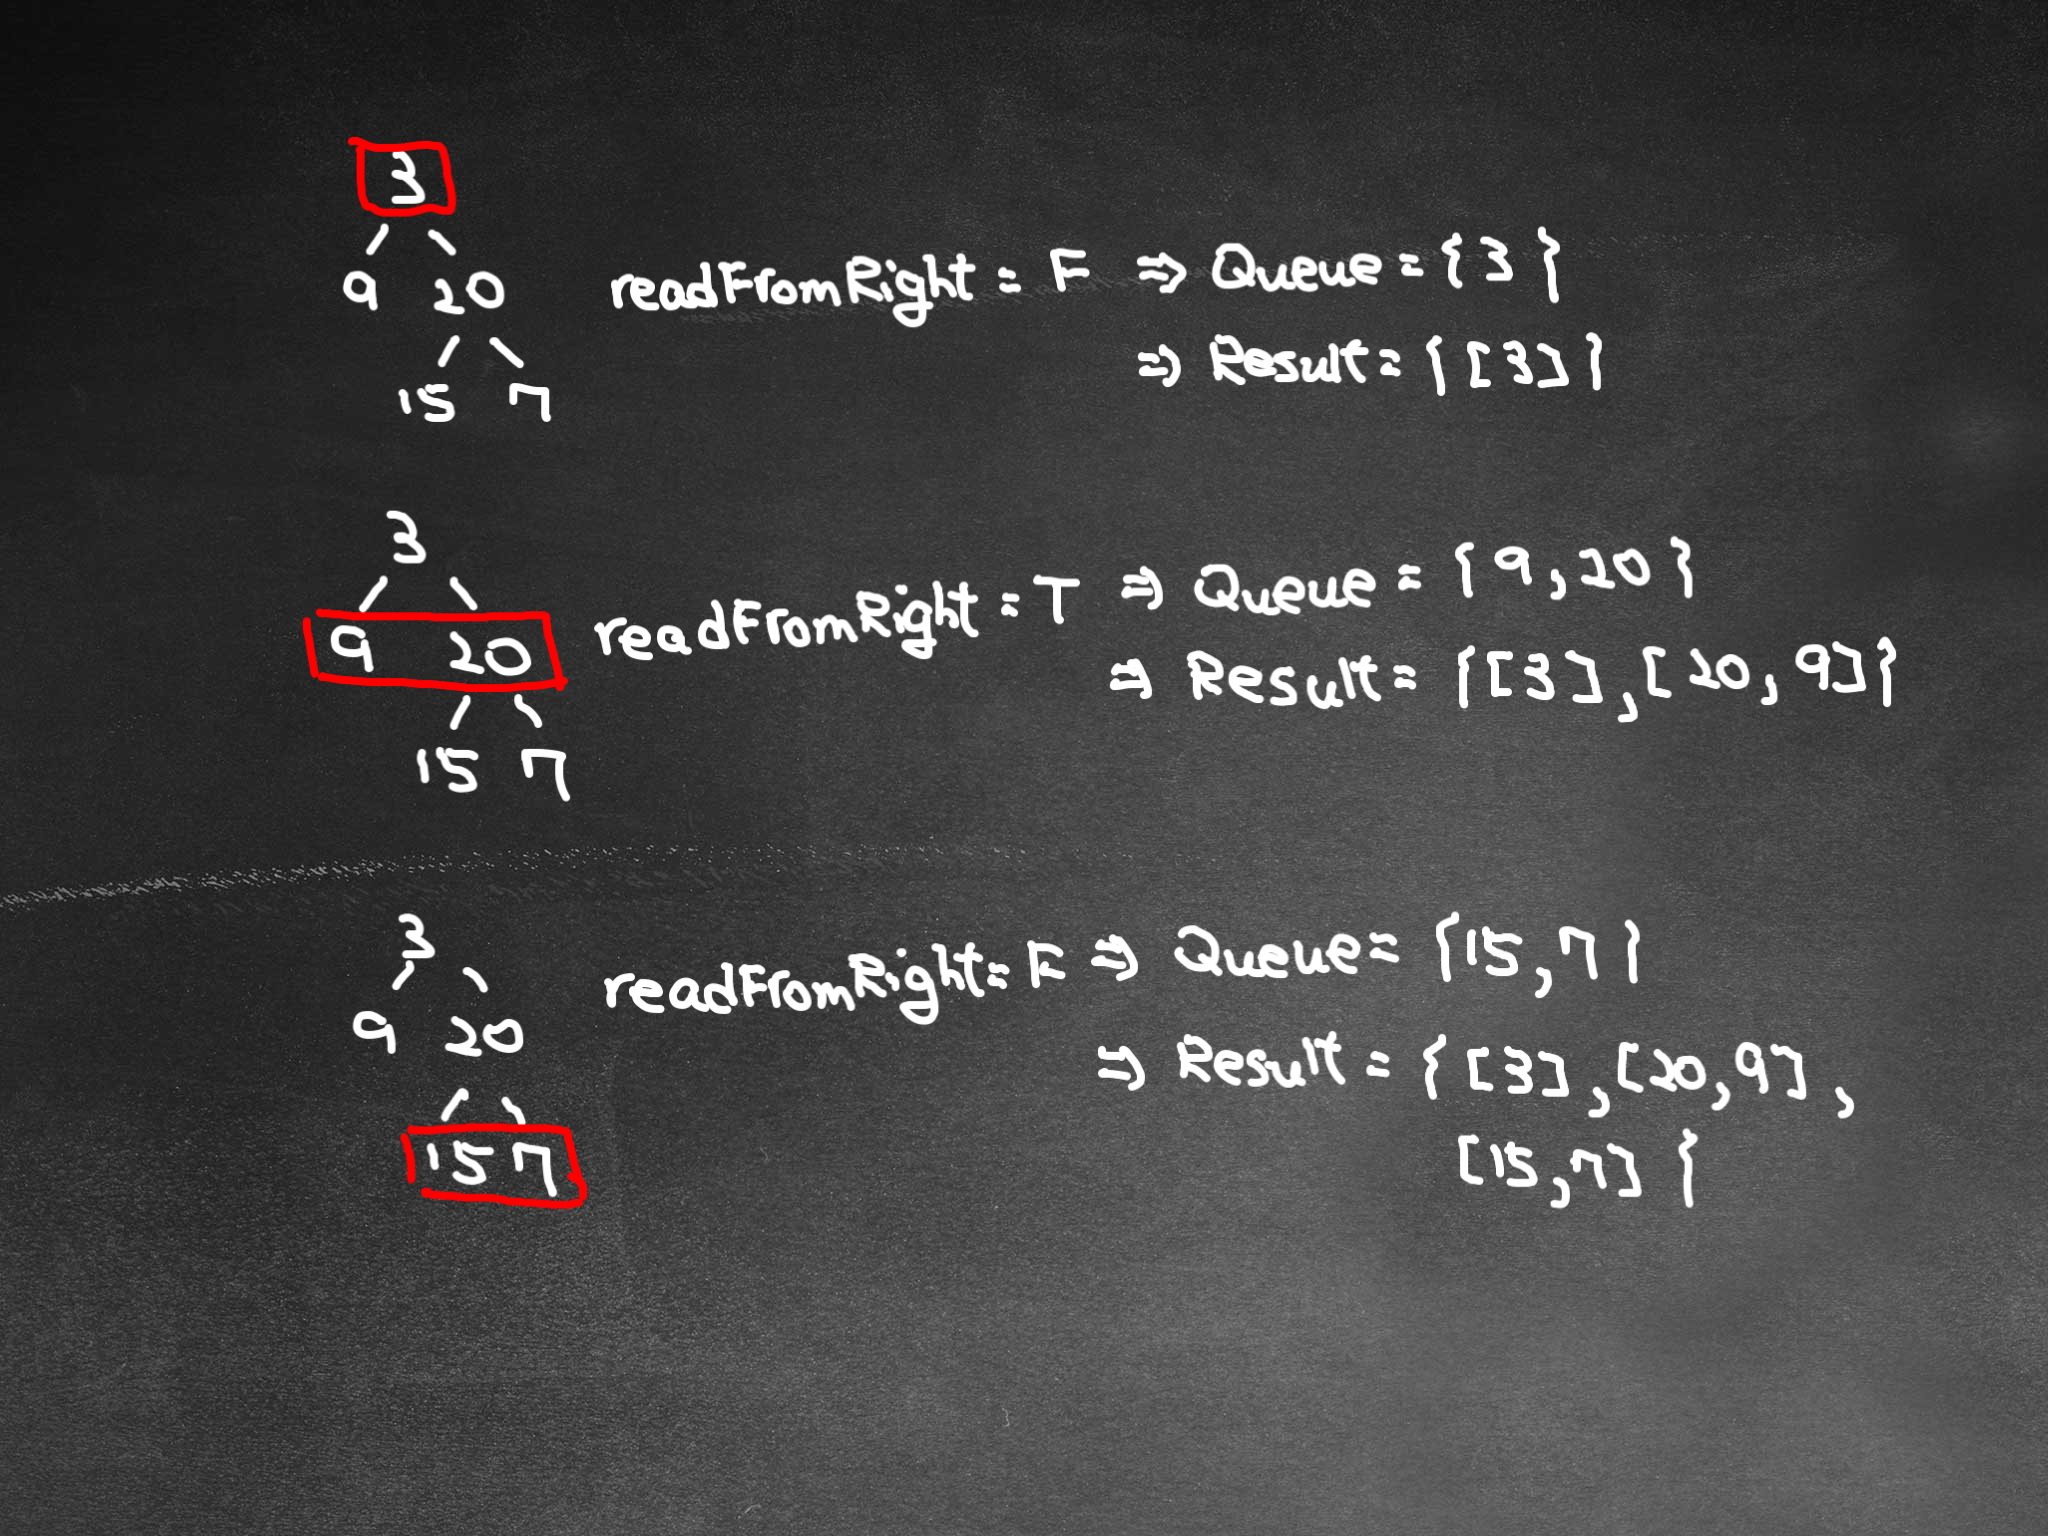 3
9 20
15 7
readFromRight = F ⇒ Queue = { 3 }
⇒ Result = { [3] }
3
9 20
15 7
readFromRight = T ⇒ Queue = { 9, 20 }
⇒ Result = { [3], [20, 9] }
3
9 20
15 7
readFromRight = F ⇒ Queue = { 15, 7 }
⇒ Result = { [3], [20, 9],
[15, 7] {